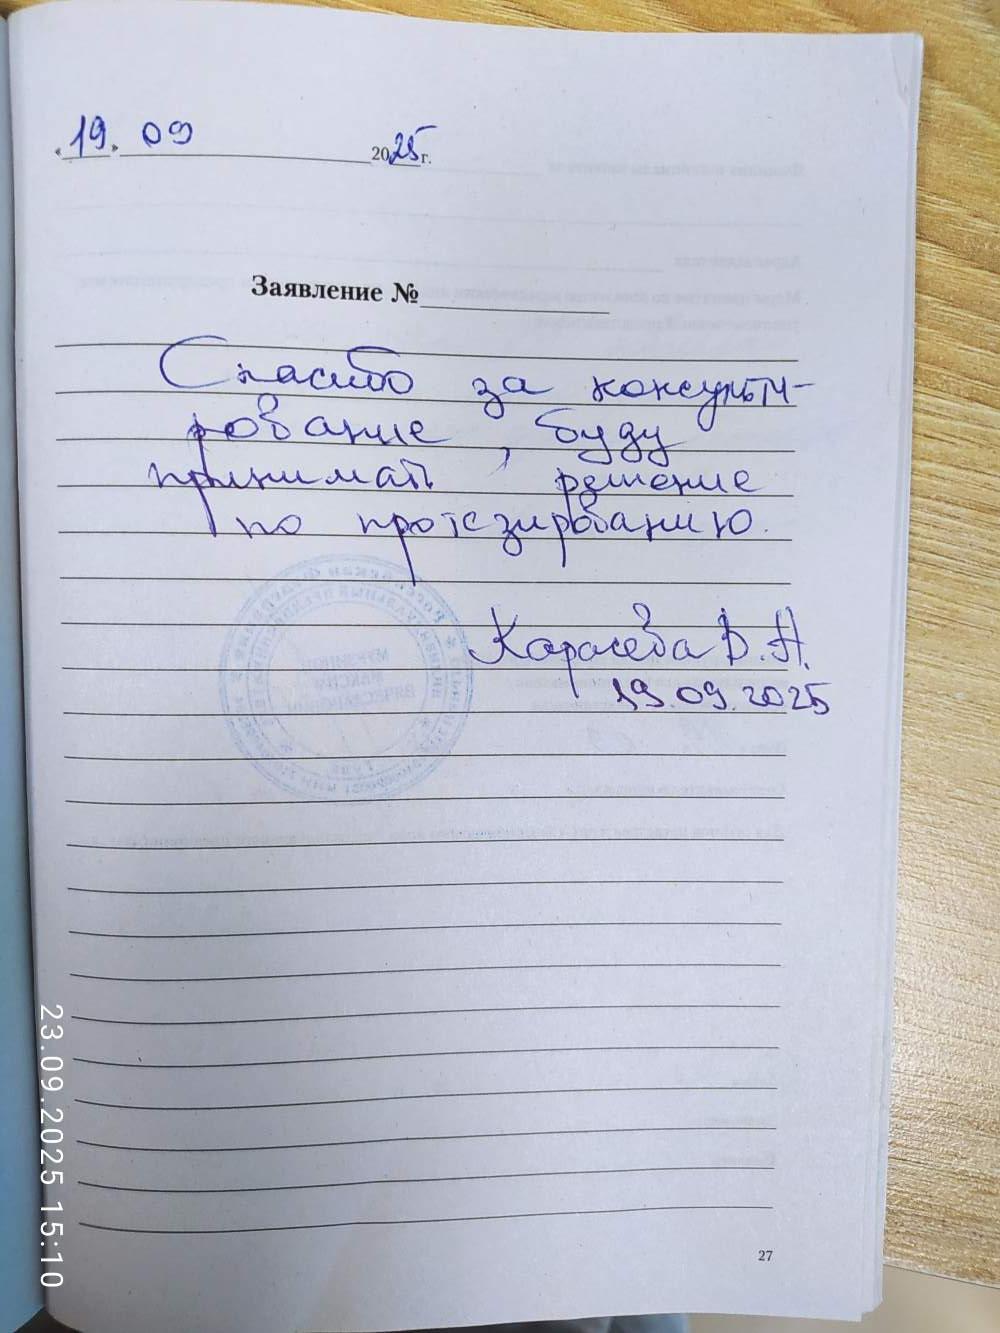 «19.» 09 2025 г.
Заявление №
Спасибо за консульти-
рование, буду
принимать решение
по протезированию.
Карасева В.А.
19.09.2025
23.09.2025 15:10
27